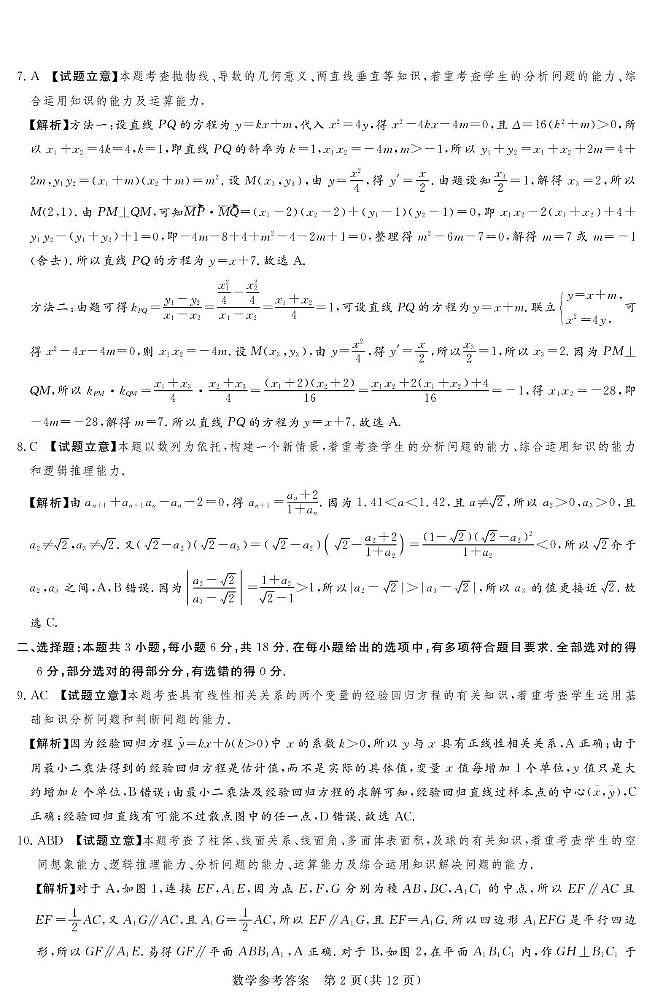 7. A 【试题立意】本题考查抛物线、导数的几何意义、两直线垂直等知识,着重考查学生的分析问题的能力、综
合运用知识的能力及运算能力.
【解析】方法一:设直线 PQ 的方程为 y=kx+m,代入 x²=4y,得 x²-4kx-4m=0,且 Δ=16(k²+m)>0,所
以 x₁+x₂=4k=4,k=1,即直线 PQ 的斜率为 k=1,x₁x₂=-4m,m>-1,所以 y₁+y₂=x₁+x₂+2m=4+
2m,y₁y₂=(x₁+m)(x₂+m)=m². 设 M(x₃,y₃),由 y=x²/4,得 y′=x/2. 由题设知 x₃/2=1,解得 x₃=2,所以
M(2,1). 由 PM⊥QM,可知 MP·MQ=(x₁-2)(x₂-2)+(y₁-1)(y₂-1)=0,即 x₁x₂-2(x₁+x₂)+4+
y₁y₂-(y₁+y₂)+1=0,即-4m-8+4+m²-4-2m+1=0,整理得 m²-6m-7=0,解得 m=7 或 m=-1
(舍去). 所以直线 PQ 的方程为 y=x+7. 故选 A.
方法二:由题可得 k_PQ=(y₁-y₂)/(x₁-x₂)=(x₁²/4-x₂²/4)/(x₁-x₂)=(x₁+x₂)/4=1,可设直线 PQ 的方程为 y=x+m. 联立{y=x+m, x²=4y, 可
得 x²-4x-4m=0,则 x₁x₂=-4m. 设 M(x₃,y₃),由 y=x²/4,得 y′=x/2,所以 x₃/2=1,所以 x₃=2. 因为 PM⊥
QM,所以 k_PM·k_QM=(x₁+x₃)/4·(x₂+x₃)/4=(x₁+2)(x₂+2)/16=(x₁x₂+2(x₁+x₂)+4)/16=-1,得 x₁x₂=-28,即
-4m=-28,解得 m=7. 所以直线 PQ 的方程为 y=x+7. 故选 A.
8. C 【试题立意】本题以数列为依托,构建一个新情景,着重考查学生的分析问题的能力、综合运用知识的能力
和逻辑推理能力.
【解析】由 aₙ₊₁+aₙ₊₁aₙ-aₙ-2=0,得 aₙ₊₁=(aₙ+2)/(1+aₙ). 因为 1.41<a<1.42,且 a≠√2,所以 a₂>0,a₃>0,且
a₂≠√2,a₃≠√2. 又(√2-a₂)(√2-a₃)=(√2-a₂)(√2-(a₂+2)/(1+a₂))=(1-√2)(√2-a₂)²/(1+a₂)<0,所以√2介于
a₂,a₃ 之间,A、B 错误. 因为|(a₂-√2)/(a₃-√2)|=(1+a₂)/(√2-1)>1,所以|a₂-√2|>|a₃-√2|,所以 a₃ 的值更接近√2. 故
选 C.
二、选择题:本题共 3 小题,每小题 6 分,共 18 分. 在每小题给出的选项中,有多项符合题目要求. 全部选对的得
6 分,部分选对的得部分分,有选错的得 0 分.
9. AC 【试题立意】本题考查具有线性相关关系的两个变量的经验回归方程的有关知识,着重考查学生运用基
础知识分析问题和判断问题的能力.
【解析】因为经验回归方程 ŷ=kx+b(k>0)中 x 的系数 k>0,所以 y 与 x 具有正线性相关关系,A 正确;由于
用最小二乘法得到的经验回归方程是估计值,而不是实际的具体值,变量 x 值每增加 1 个单位,y 值只是大
约增加 k 个单位,B 错误;由最小二乘法及经验回归方程的求解可知,经验回归直线过样本点的中心(x̄,ȳ),C
正确;经验回归直线有可能不过散点图中的任一点,D 错误. 故选 AC.
10. ABD 【试题立意】本题考查了柱体、线面关系、线面角、多面体表面积,及球的有关知识,着重考查学生的空
间想象能力、逻辑推理能力、分析问题的能力、运算能力及综合运用知识解决问题的能力.
【解析】对于 A,如图 1,连接 EF,A₁E,因为点 E,F,G 分别为棱 AB,BC,A₁C₁ 的中点,所以 EF∥AC 且
EF=1/2AC,又 A₁G∥AC,且 A₁G=1/2AC,所以 EF∥A₁G,且 EF=A₁G. 所以四边形 A₁EFG 是平行四边
形,所以 GF∥A₁E. 易得 GF∥平面 ABB₁A₁,A 正确. 对于 B,如图 2,在平面 A₁B₁C₁ 内,作 GH⊥B₁C₁ 于
数学参考答案 第 2 页(共 12 页)